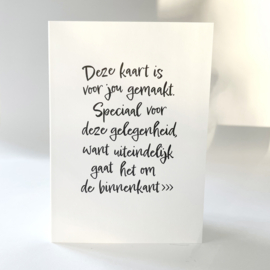 Deze kaart is
voor jou gemaakt.
Speciaal voor
deze gelegenheid,
want uiteindelijk
gaat het om
de binnenkant >>>